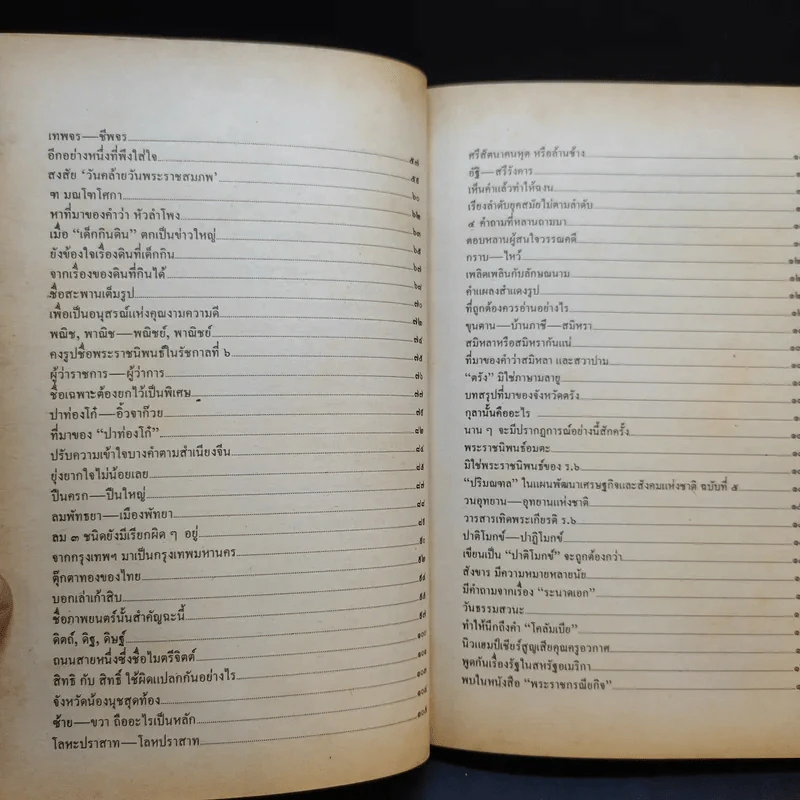 เทพจร—ชีพจร
อีกอย่างหนึ่งที่พึงใส่ใจ ๕๗
สงสัย ‘วันคล้ายวันพระราชสมภพ’ ๕๕
ฑ มณโฑโศกา ๖๐
หาที่มาของคำว่า หัวลำโพง ๖๒
เมื่อ “เด็กกินดิน” ตกเป็นข่าวใหญ่ ๖๓
ยังข้องใจเรื่องดินที่เด็กกิน ๖๕
จากเรื่องของดินที่กินได้ ๖๗
ชื่อสะพานเต็มรูป ๖๘
เพื่อเป็นอนุสรณ์แห่งคุณงามความดี ๗๐
พณิช, พาณิช—พณิชย์, พาณิชย์ ๗๒
คงรูปชื่อพระราชนิพนธ์ในรัชกาลที่ ๖ ๗๔
ผู้ว่าราชการ—ผู้ว่าการ ๗๕
ชื่อเฉพาะต้องยกไว้เป็นพิเศษ ๗๖
ปาท่องโก๋—อิ้วจาก๊วย ๗๗
ที่มาของ “ปาท่องโก๋”
ปรับความเข้าใจบางคำตามสำเนียงจีน ๘๒
ยุ่งยากใจไม่น้อยเลย ๘๔
ปืนครก—ปืนใหญ่ ๘๕
ลมพัทธยา—เมืองพัทยา
ลม ๓ ชนิดยังมีเรียกผิด ๆ อยู่
จากกรุงเทพฯ มาเป็นกรุงเทพมหานคร
ตุ๊กตาทองของไทย
บอกเล่าเก้าสิบ
ชื่อภาพยนตร์นั้นสำคัญฉะนี้
ดิตถ์, ดิฐ, ดิษฐ์
ถนนสายหนึ่งซึ่งชื่อไมตรีจิตต์ ๑๐๐
สิทธิ กับ สิทธิ์ ใช้ผิดแปลกกันอย่างไร
จังหวัดน้องนุชสุดท้อง
ซ้าย—ขวา ถืออะไรเป็นหลัก
โลหะปราสาท—โลหปราสาท
ศรีสัตนาคนหุต หรือล้านช้าง
อัฐิ—สรีรังคาร
เห็นคำแล้วทำให้ฉงน
เรียงลำดับยุคสมัยไม่ตามลำดับ
๔ คำถามที่หลานถามมา
ตอบหลานผู้สนใจวรรณคดี
กราบ—ไหว้
เพลิดเพลินกับลักษณนาม
คำแผลงสำแดงรูป
ที่ถูกต้องควรอ่านอย่างไร
ขุนตาน—บ้านภาชี—สมิหรา
สมิหลาหรือสมิหรากันแน่
ที่มาของคำว่าสมิหลา และสวาปาม
“ตรัง” มิใช่ภาษามลายู
บทสรุปที่มาของจังหวัดตรัง
กุลานั้นคืออะไร
นาน ๆ จะมีปรากฏการณ์อย่างนี้สักครั้ง
พระราชนิพนธ์อมตะ
มิใช่พระราชนิพนธ์ของ ร.๖
“ปริมณฑล” ในแผนพัฒนาเศรษฐกิจและสังคมแห่งชาติ ฉบับที่ ๕
วนอุทยาน—อุทยานแห่งชาติ
วารสารเทิดพระเกียรติ ร.๖
ปาติโมกข์—ปาฏิโมกข์
เขียนเป็น “ปาติโมกข์” จะถูกต้องกว่า
สังขาร มีความหมายหลายนัย
มีคำถามจากเรื่อง “ระนาดเอก”
วันธรรมสวนะ
ทำให้นึกถึงคำ “โคลัมเบีย”
นิวแฮมป์เชียร์สูญเสียคุณครูอวกาศ
พูดกันเรื่องรัฐในสหรัฐอเมริกา
พบในหนังสือ “พระราชกรณียกิจ”